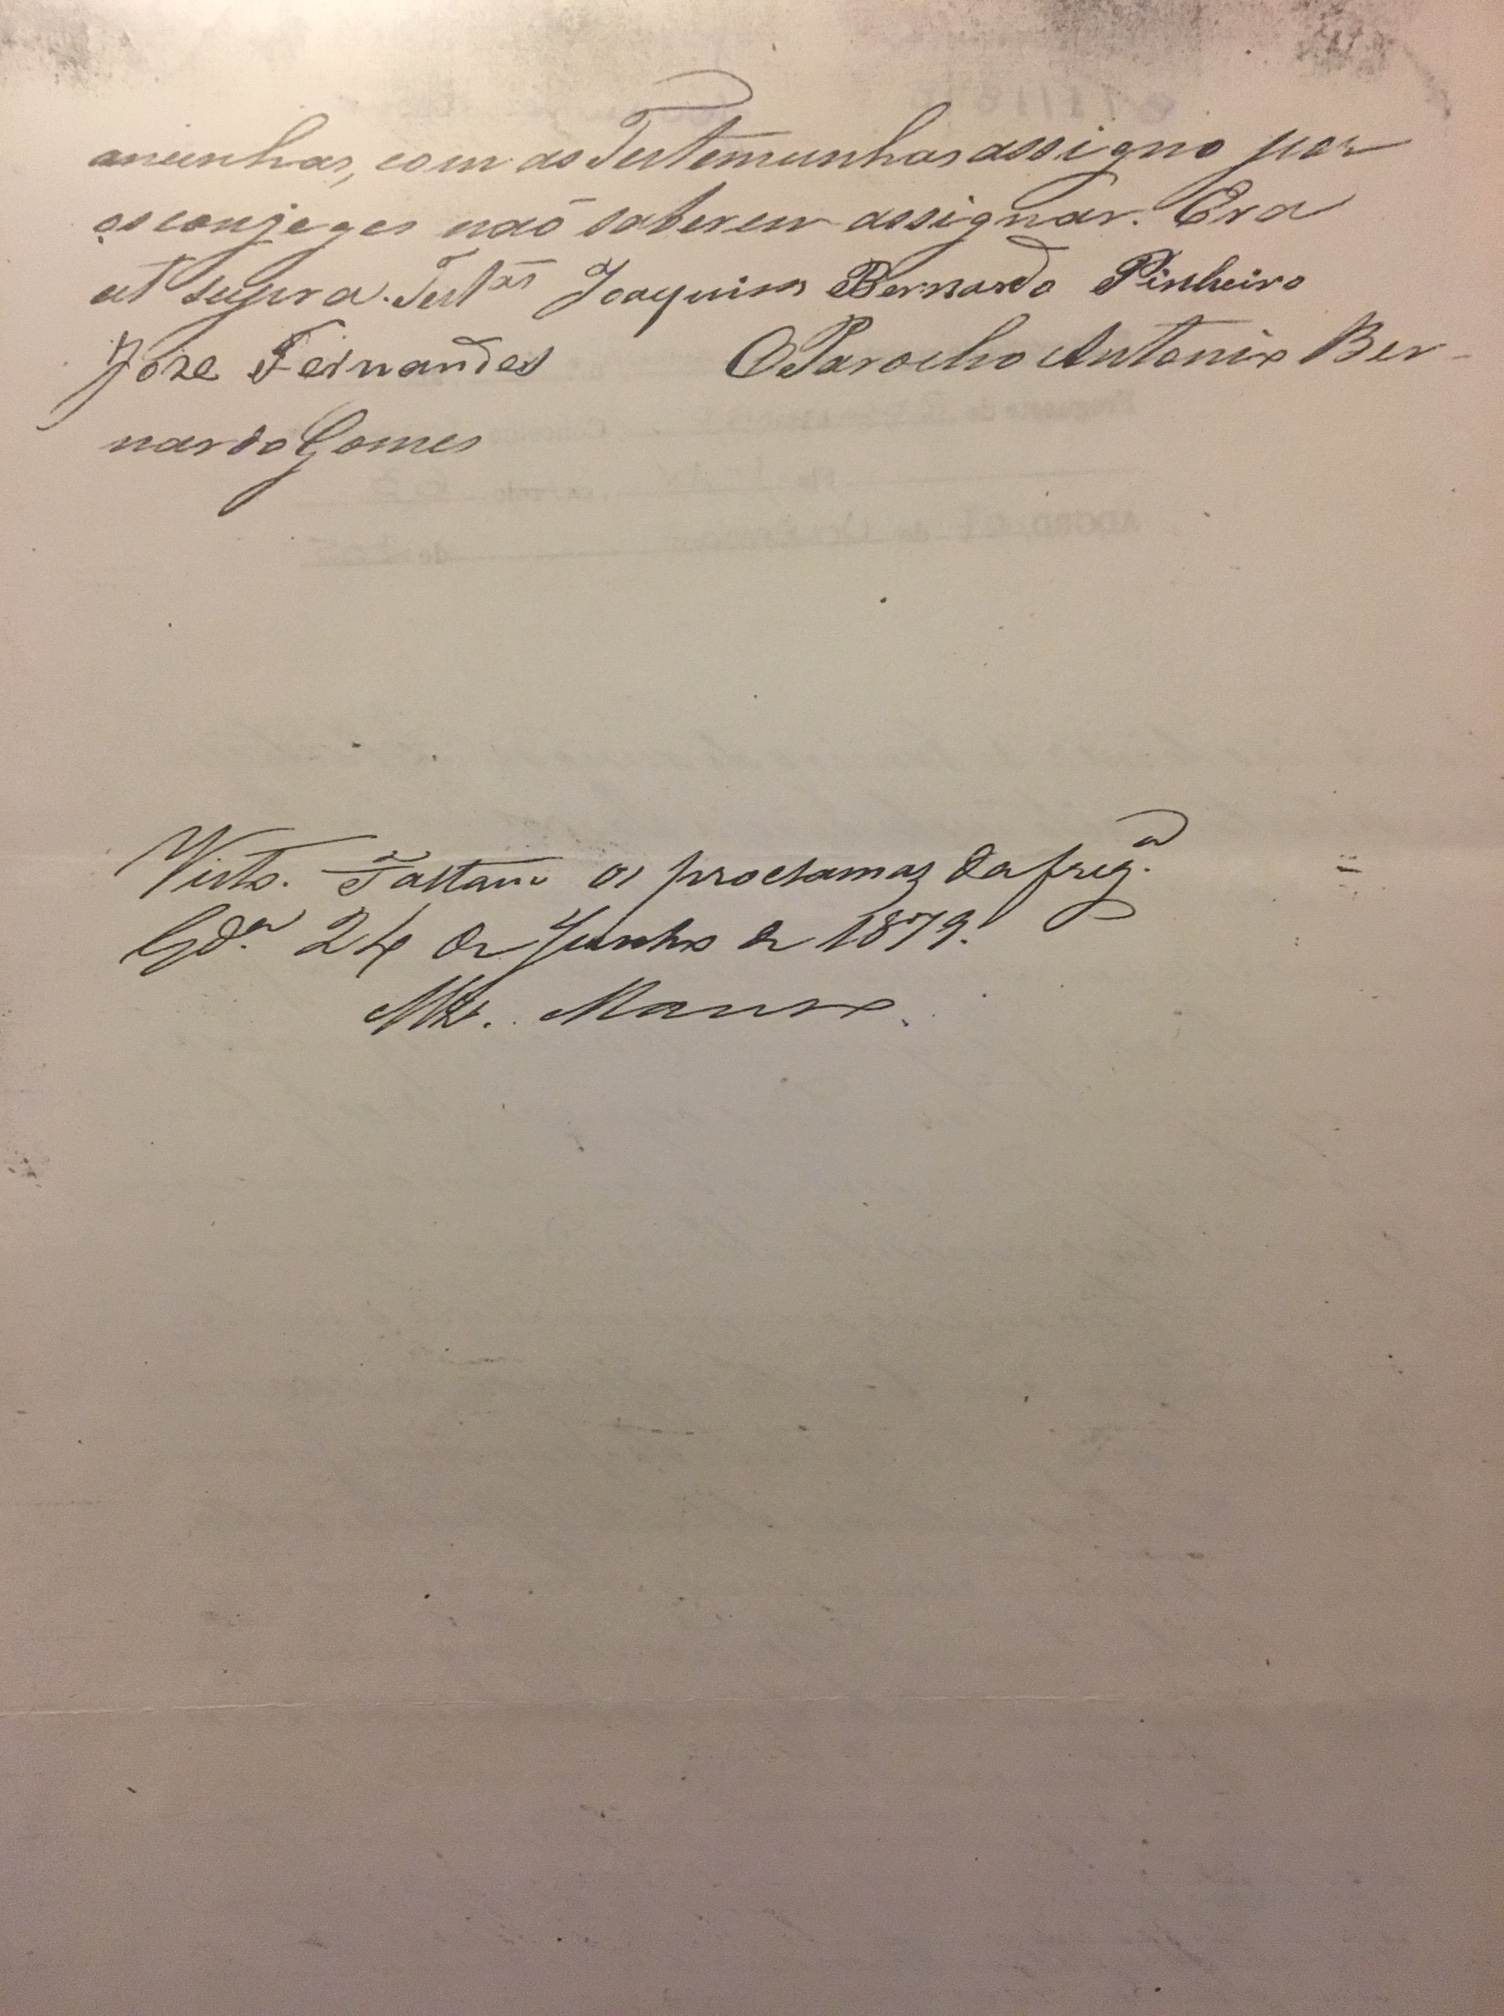 com as Testemunhas assigno por
os conjeges não saberem assignar. Era
ut supra. Test.as Joaquim Bernardo Pinheiro
Joze Fernandes O Parocho Antonio Ber-
nardo Gomes
Visto. Faltam os proclamas da freg.a
Gd.a 24 de Junho de 1879.